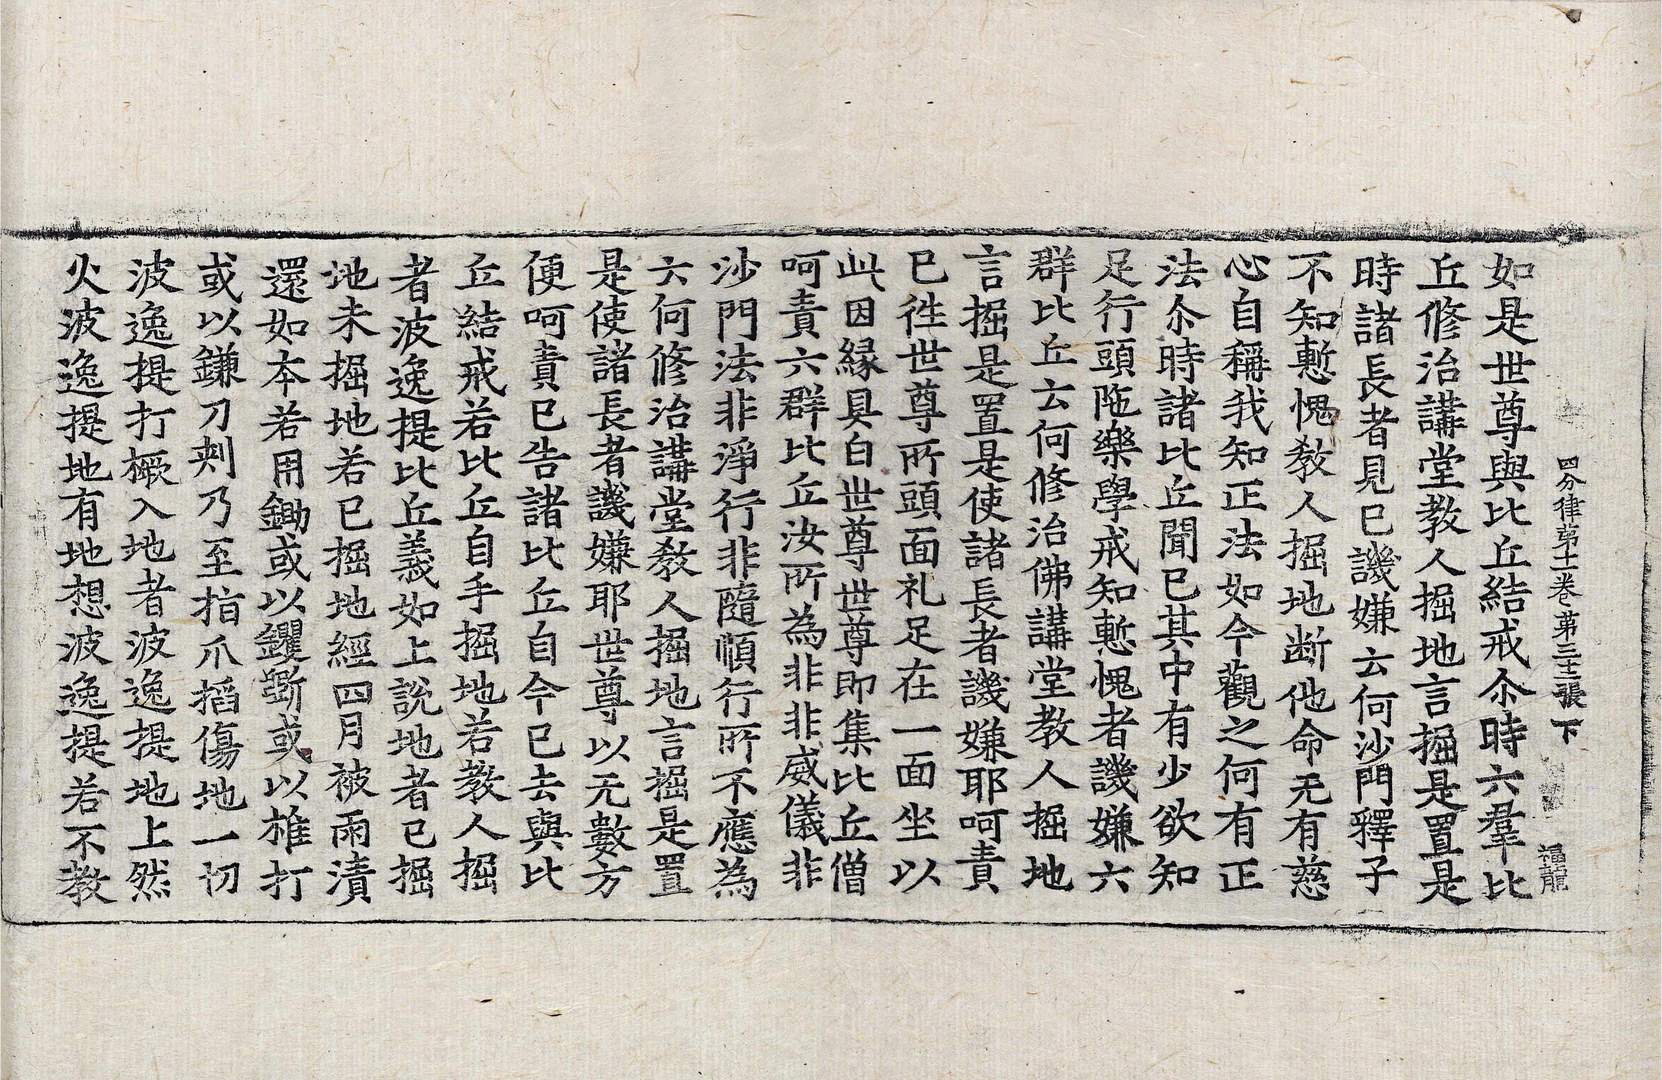 四分律第十一卷第三十二張下
福龍
如是世尊與比丘結戒尒時六羣比
丘修治講堂教人掘地言掘是置是
時諸長者見已譏嫌云何沙門釋子
不知慙愧教人掘地断他命无有慈
心自稱我知正法如今觀之何有正
法尒時諸比丘聞已其中有少欲知
足行頭陁樂學戒知慙愧者譏嫌六
群比丘云何修治佛講堂教人掘地
言掘是置是使諸長者譏嫌耶呵責
已徃世尊所頭面礼足在一面坐以
此因緣具白世尊世尊即集比丘僧
呵責六群比丘汝所為非非威儀非
沙門法非淨行非隨順行所不應為
云何修治講堂教人掘地言掘是置
是使諸長者譏嫌耶世尊以无數方
便呵責已告諸比丘自今已去與比
丘結戒若比丘自手掘地若教人掘
者波逸提比丘義如上說地者已掘
地未掘地若已掘地經四月被雨漬
還如本若用鋤或以钁斸或以椎打
或以鎌刀刾乃至指爪搯傷地一切
波逸提打橛入地者波逸提地上然
火波逸提地有地想波逸提若不教